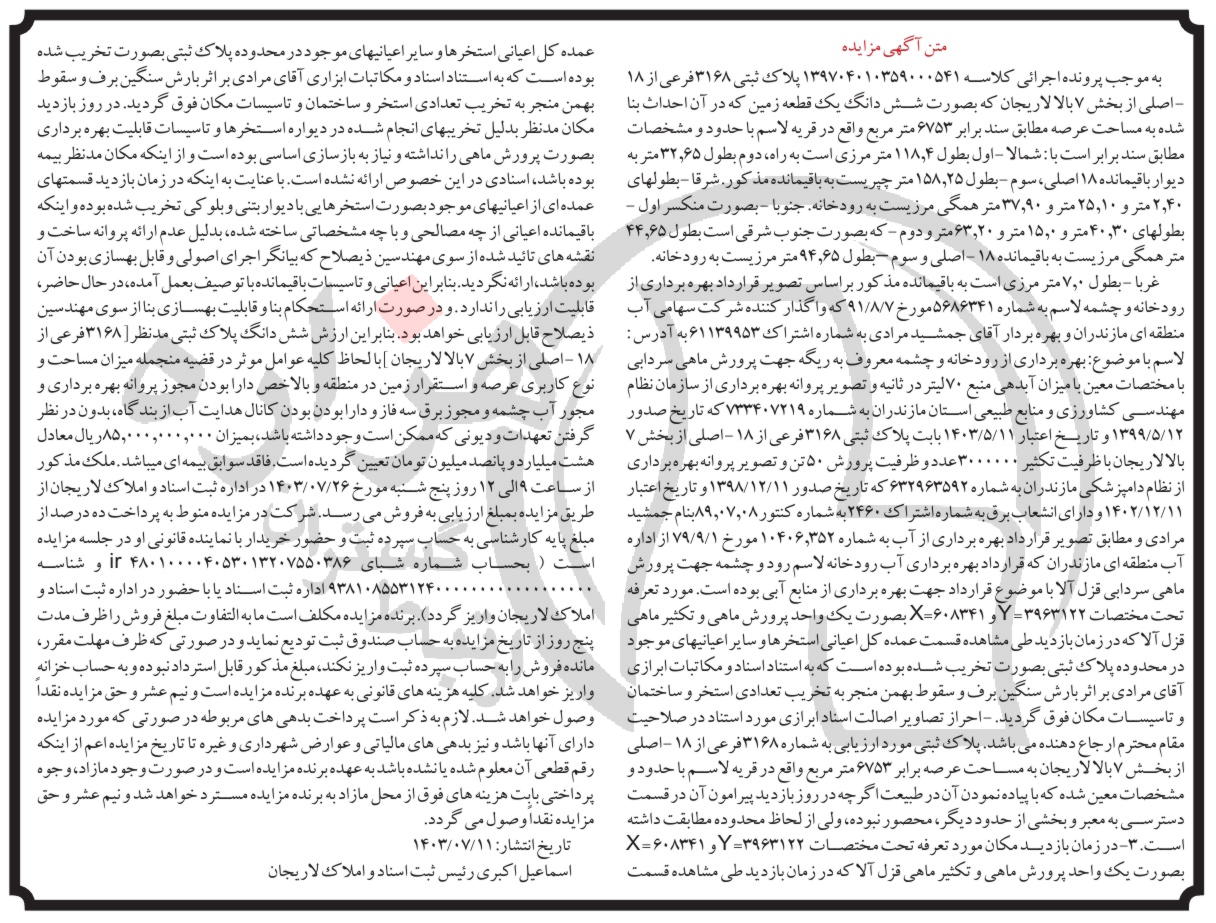 متن آگهی مزایده
به موجب پرونده اجرائی کلاسه ۱۳۹۷۰۴۰۱۰۳۵۹۰۰۰۵۴۱ پلاک ثبتی ۳۱۶۸فرعی از ۱۸
-اصلی از بخش ۷بالا لاریجان که بصورت شش دانگ یک قطعه زمین که در آن احداث بنا
شده به مساحت عرصه مطابق سند برابر ۶۷۵۳متر مربع واقع در قریه لاسم با حدود و مشخصات
مطابق سند برابر است با: شمالا -اول بطول ۱۱۸,۴ متر مرزی است به راه، دوم بطول ۳۲,۶۵متر به
دیوار باقیمانده ۱۸اصلی، سوم -بطول ۱۵۸,۲۵ متر چپریست به باقیمانده مذکور. شرقا -بطولهای
۲,۴۰متر و ۲۵,۱۰متر و ۳۷,۹۰متر همگی مرزیست به رودخانه. جنوبا -بصورت منکسر اول -
بطولهای ۴۰,۳۰متر و ۱۵,۰متر و ۶۳,۲۰متر و دوم -که بصورت جنوب شرقی است بطول ۴۴,۶۵
متر همگی مرزیست به باقیمانده ۱۸ -اصلی و سوم -بطول ۹۴,۶۵متر مرزیست به رودخانه.
غربا -بطول ۷,۰متر مرزی است به باقیمانده مذکور براساس تصویر قرارداد بهره برداری از
رودخانه و چشمه لاسم به شماره ۵۶۸۶۳۴۱مورخ ۹۱/۸/۷که واگذار کننده شرکت سهامی آب
منطقه ای مازندران و بهره بردار آقای جمشید مرادی به شماره اشتراک ۶۱۱۳۹۹۵۳ به آدرس :
لاسم با موضوع: بهره برداری از رودخانه و چشمه معروف به ریگه جهت پرورش ماهی سردابی
با مختصات معین با میزان آبدهی منبع ۷۰لیتر در ثانیه و تصویر پروانه بهره برداری از سازمان نظام
مهندسی کشاورزی و منابع طبیعی استان مازندران به شماره ۷۳۳۴۰۷۲۱۹ که تاریخ صدور
۱۳۹۹/۵/۱۲ و تاریخ اعتبار ۱۴۰۳/۵/۱۱ بابت پلاک ثبتی ۳۱۶۸فرعی از ۱۸ -اصلی از بخش ۷
بالا لاریجان با ظرفیت تکثیر ۳۰۰۰۰۰۰عدد و ظرفیت پرورش ۵۰تن و تصویر پروانه بهره برداری
از نظام دامپزشکی مازندران به شماره ۶۳۲۹۶۳۵۹۲ که تاریخ صدور ۱۳۹۸/۱۲/۱۱ و تاریخ اعتبار
۱۴۰۲/۱۲/۱۱ و دارای انشعاب برق به شماره اشتراک ۲۴۶۰به شماره کنتور ۸۹,۰۷,۰۸بنام جمشید
مرادی و مطابق تصویر قرارداد بهره برداری از آب به شماره ۱۰۴۰۶,۳۵۲ مورخ ۷۹/۹/۱ از اداره
آب منطقه ای مازندران که قرارداد بهره برداری آب رودخانه لاسم رود و چشمه جهت پرورش
ماهی سردابی قزل آلا با موضوع قرارداد جهت بهره برداری از منابع آبی بوده است. مورد تعرفه
تحت مختصات Y=۳۹۶۳۱۲۲ و X=۶۰۸۳۴۱ بصورت یک واحد پرورش ماهی و تکثیر ماهی
قزل آلا که در زمان بازدید طی مشاهده قسمت عمده کل اعیانی استخرها و سایر اعیانیهای موجود
در محدوده پلاک ثبتی بصورت تخریب شده بوده است که به استناد اسناد و مکاتبات ابرازی
آقای مرادی بر اثر بارش سنگین برف و سقوط بهمن منجر به تخریب تعدادی استخر و ساختمان
و تاسیسات مکان فوق گردید. -احراز تصاویر اصالت اسناد ابرازی مورد استناد در صلاحیت
مقام محترم ارجاع دهنده می باشد. پلاک ثبتی مورد ارزیابی به شماره ۳۱۶۸فرعی از ۱۸ -اصلی
از بخش ۷بالا لاریجان به مساحت عرصه برابر ۶۷۵۳متر مربع واقع در قریه لاسم با حدود و
مشخصات معین شده که با پیاده نمودن آن در طبیعت اگر چه در روز بازدید پیرامون آن در قسمت
دسترسی به معبر و بخشی از حدود دیگر، محصور نبوده، ولی از لحاظ محدوده مطابقت داشته
است. ۳-در زمان بازدید مکان مورد تعرفه تحت مختصات Y=۳۹۶۳۱۲۲ و X=۶۰۸۳۴۱
بصورت یک واحد پرورش ماهی و تکثیر ماهی قزل آلا که در زمان بازدید طی مشاهده قسمت
عمده کل اعیانی استخرها و سایر اعیانیهای موجود در محدوده پلاک ثبتی بصورت تخریب شده
بوده است که به استناد اسناد و مکاتبات ابزاری آقای مرادی بر اثر بارش سنگین برف و سقوط
بهمن منجر به تخریب تعدادی استخر و ساختمان و تاسیسات مکان فوق گردید. در روز بازدید
مکان مدنظر بدلیل تخریبهای انجام شده در دیواره استخرها و تاسیسات قابلیت بهره برداری
بصورت پرورش ماهی را نداشته و نیاز به بازسازی اساسی بوده است و از اینکه مکان مدنظر بیمه
بوده باشد، اسنادی در این خصوص ارائه نشده است. با عنایت به اینکه در زمان بازدید قسمتهای
عمده ای از اعیانیهای موجود بصورت استخرهایی با دیوار بتنی و بلوکی تخریب شده بوده و اینکه
باقیمانده اعیانی از چه مصالحی و با چه مشخصاتی ساخته شده، بدلیل عدم ارائه پروانه ساخت و
نقشه های تائید شده از سوی مهندسین ذیصلاح که بیانگر اجرای اصولی و قابل بهسازی بودن آن
بوده باشد، ارائه نگردید. بنابراین اعیانی و تاسیسات باقیمانده با توصیف بعمل آمده، در حال حاضر،
قابلیت ارزیابی را ندارد. و در صورت ارائه استحکام بنا و قابلیت بهسازی بنا از سوی مهندسین
ذیصلاح قابل ارزیابی خواهد بود. بنابراین ارزش شش دانگ پلاک ثبتی مدنظر [ ۳۱۶۸فرعی از
۱۸ -اصلی از بخش ۷بالا لاریجان ] با لحاظ کلیه عوامل موثر در قضیه منجمله میزان مساحت و
نوع کاربری عرصه و استقرار زمین در منطقه و بالاخص دارا بودن مجوز پروانه بهره برداری و
مجوز آب چشمه و مجوز برق سه فاز و دارا بودن بودن کانال هدایت آب از بندگاه، بدون در نظر
گرفتن تعهدات و دیونی که ممکن است وجود داشته باشد، بمیزان ۸۵,۰۰۰,۰۰۰,۰۰۰ریال معادل
هشت میلیارد و پانصد میلیون تومان تعیین گردیده است. فاقد سوابق بیمه ای میباشد. ملک مذکور
از ساعت ۹الی ۱۲ روز پنج شنبه مورخ ۱۴۰۳/۰۷/۲۶ در اداره ثبت اسناد و املاک لاریجان از
طریق مزایده بمبلغ ارزیابی به فروش می رسد. شرکت در مزایده منوط به پرداخت ده درصد از
مبلغ پایه کارشناسی به حساب سپرده ثبت و حضور خریدار با نماینده قانونی او در جلسه مزایده
است ( بحساب شماره شبای ir ۴۸۰۱۰۰۰۰۴۰۵۳۰۱۳۲۰۷۵۵۰۳۸۶ و شناسه
۹۳۸۱۰۸۵۵۳۱۲۴۰۰۰۰۰۰۰۰۰۰۰۰۰۰۰۰۰۰ اداره ثبت اسناد یا با حضور در اداره ثبت اسناد و
املاک لاریجان واریز گردد). برنده مزایده مکلف است ما به التفاوت مبلغ فروش را ظرف مدت
پنج روز از تاریخ مزایده به حساب صندوق ثبت تودیع نماید و در صورتی که ظرف مهلت مقرر،
مانده فروش را به حساب سپرده ثبت واریز نکند، مبلغ مذکور قابل استرداد نبوده و به حساب خزانه
واریز خواهد شد. کلیه هزینه های قانونی به عهده برنده مزایده است و نیم عشر و حق مزایده نقداً
وصول خواهد شد. لازم به ذکر است پرداخت بدهی های مربوطه در صورتی که مورد مزایده
دارای آنها باشد و نیز بدهی های مالیاتی و عوارض شهرداری و غیره تا تاریخ مزایده اعم از اینکه
رقم قطعی آن معلوم شده یا نشده باشد به عهده برنده مزایده است و در صورت وجود مازاد، وجوه
پرداختی بابت هزینه های فوق از محل مازاد به برنده مزایده مسترد خواهد شد و نیم عشر و حق
مزایده نقداً وصول می گردد.
تاریخ انتشار: ۱۴۰۳/۰۷/۱۱
اسماعیل اکبری رئیس ثبت اسناد و املاک لاریجان